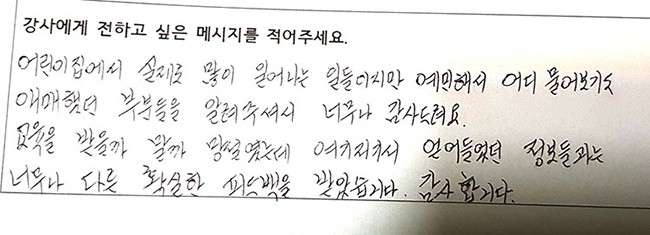 강사에게 전하고 싶은 메시지를 적어주세요.
어린이집에서 실제로 많이 일어나는 일들이지만 예민해서 어디 물어보기도
애매했던 부분들을 알려주셔서 너무나 감사드려요.
교육을 받을까 말까 망설였는데 여기저기서 얻어들었던 정보들과는
너무나 다른 확실한 피드백을 받았습니다. 감사합니다.